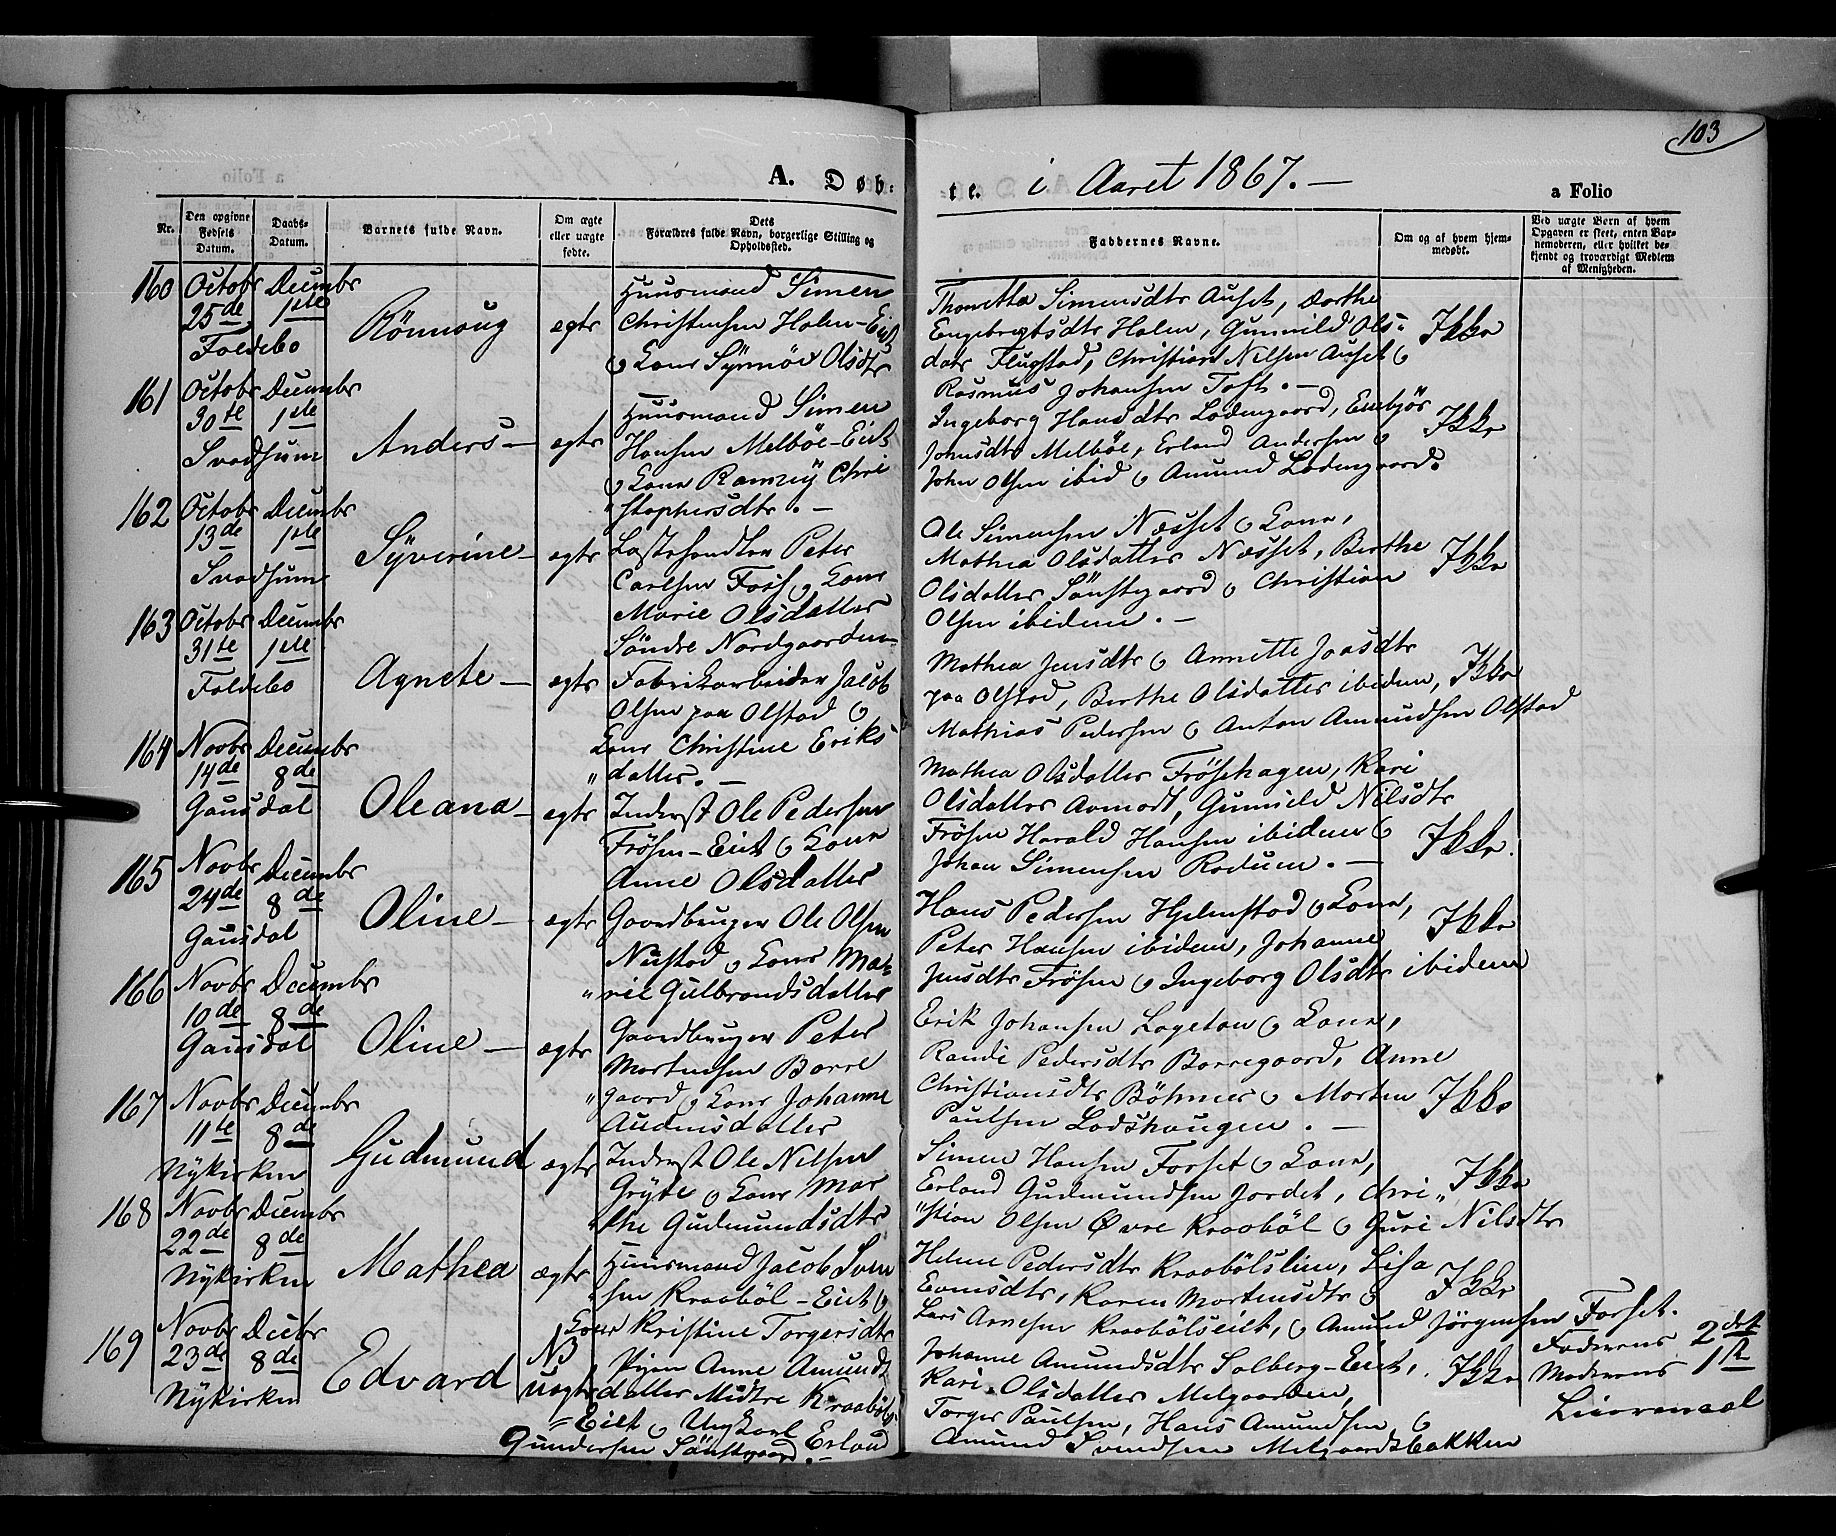 103
A. Døb-
te. i Aaret 1867. —
a Folio
Nr.
Den opgivne Fødsels Datum.
Daabs-Datum.
Barnets fulde Navn.
Om ægte eller uægte fødte.
Dets Forældres fulde Navn, borgerlige Stilling og Opholdssted.
Faddernes Navne.
Om og af hvem hjemmedøbt.
Ved uægte Børn af hvem Opgaven er skeet, enten Barnemoderen, eller hvilket bekjendt og troværdigt Medlem af Menigheden.
160 Octobr Decembr
25de 1ste
Foldebo
Rönnoug
egte
Huusmand Simen
Christensen Holen-Eiet
og Kone Synnöv Olsdtr
Thonetta Simensdtr Auset, Dorthe
Engebregtsdtr Holen, Gunnild Ols-
datr Flugstad, Christian Nilsen Auset og
Rasmus Johansen Toft. —
Ikke
161 Octobr Decembr
30te 1ste
Svadsum
Anders —
egte
Huusmand Simen
Hansen Melböe-Eiet
og Kone Ramey Chri
"stophersdtr. —
Ingeborg Hansdtr Ladengaard, Embjör
Jonsdtr Melböe, Erland Andersen og
John Olsen ibid og Amund Ladengaard.
Ikke
162 Octobr Decembr
13de 1ste
Svadsum
Syverine —
egte
Peter
Carlsen Foss og Kone
Marie Olsdatter
Söndre Nordgaarden —
Ole Simensen Næsset og Kone,
Mathea Olsdatter Næsset, Berthe
Olsdatter Sönstegaard og Christian
Olsen ibidem. —
Ikke
163 Octobr Decembr
31te 1ste
Foldebo
Agnete —
egte
Fabrikarbeider Jacob
Olsen paa Olstad og
Kone Christine Eriks
"datter. —
Mathea Jensdtr og Annette Joasdtr
paa Olstad, Berthe Olsdatter ibidem,
Mathias Pedersen og Anton Amundsen Olstad
Ikke
164 Novbr Decembr
14de 8de
Gausdal
Oleana —
egte
Inderst Ole Pedersen
Frösen-Eiet og Kone
Anne Olsdatter
Mathea Olsdatter Frösehagen, Kari
Olsdatter Aamodt, Gunnild Nilsdtr
Frösen Harald Hansen ibidem og
Johan Simensen Rodum. —
Ikke.
165 Novbr Decembr
24de 8de
Gausdal
Oline —
egte
Gaardbruger Ole Olsen
Nustad og Kone Ma-
"rie Gulbrandsdatter
Hans Pedersen Hjelmstad og Kone,
Peter Hansen ibidem, Johanne
Jensdtr Frösen og Ingeborg Olsdtr ibidem
Ikke
166 Novbr Decembr
10de 8de
Gausdal
Oline —
ægte
Gaardbruger Peter
Mortensen Borre
"gaard og Kone Johanne
Audensdatter
Erik Johansen Lageton og Kone,
Randi Pedersdtr Borregaard, Anne
Christiansdtr Böhmer og Morten
Paulsen Lodshougen. —
Ikke
167 Novbr Decembr
11te 8de
Nykirken
Gudmund
ægte
Inderst Ole Nilsen
Gryte og Kone Mar
"the Gudmundsdtr
Simen Hansen Forset og Kone,
Erland Gudmundsen Jordet, Chri"
"stian Olsen Övre Kraaböl og Guri Nilsdtr
Ikke
168 Novbr Decembr
22de 8de
Nykirken
Mathea
ægte
Huusmand Jacob Sven
"sen Kraaböl-Eiet og
Kone Kristine Torgersdtr
Helene Pedersdtr Kraabölslien, Lisa
Evensdtr, Karen Mortensdtr og
Lars Arnesen Kraabölseiet, og Amund Jörgensen Forset.
Ikke
169 Novbr Decbr
23de 8de
Nykirken
Edvard
N3
uægte
Pigen Anne Amunds
datter Midtre Kraaböl
=Eiet og Ungkarl Erland
Gundersen Sönstegaard. —
Johanne Amundsdtr Solberg-Eiet,
Kari Olsdatter Melgaarden,
Torger Paulsen, Hans Amundsen og
Amund Svendsen Melgaardsbakken
Ikke
Faderens 2det
Moderens 1ste
Leiermaal